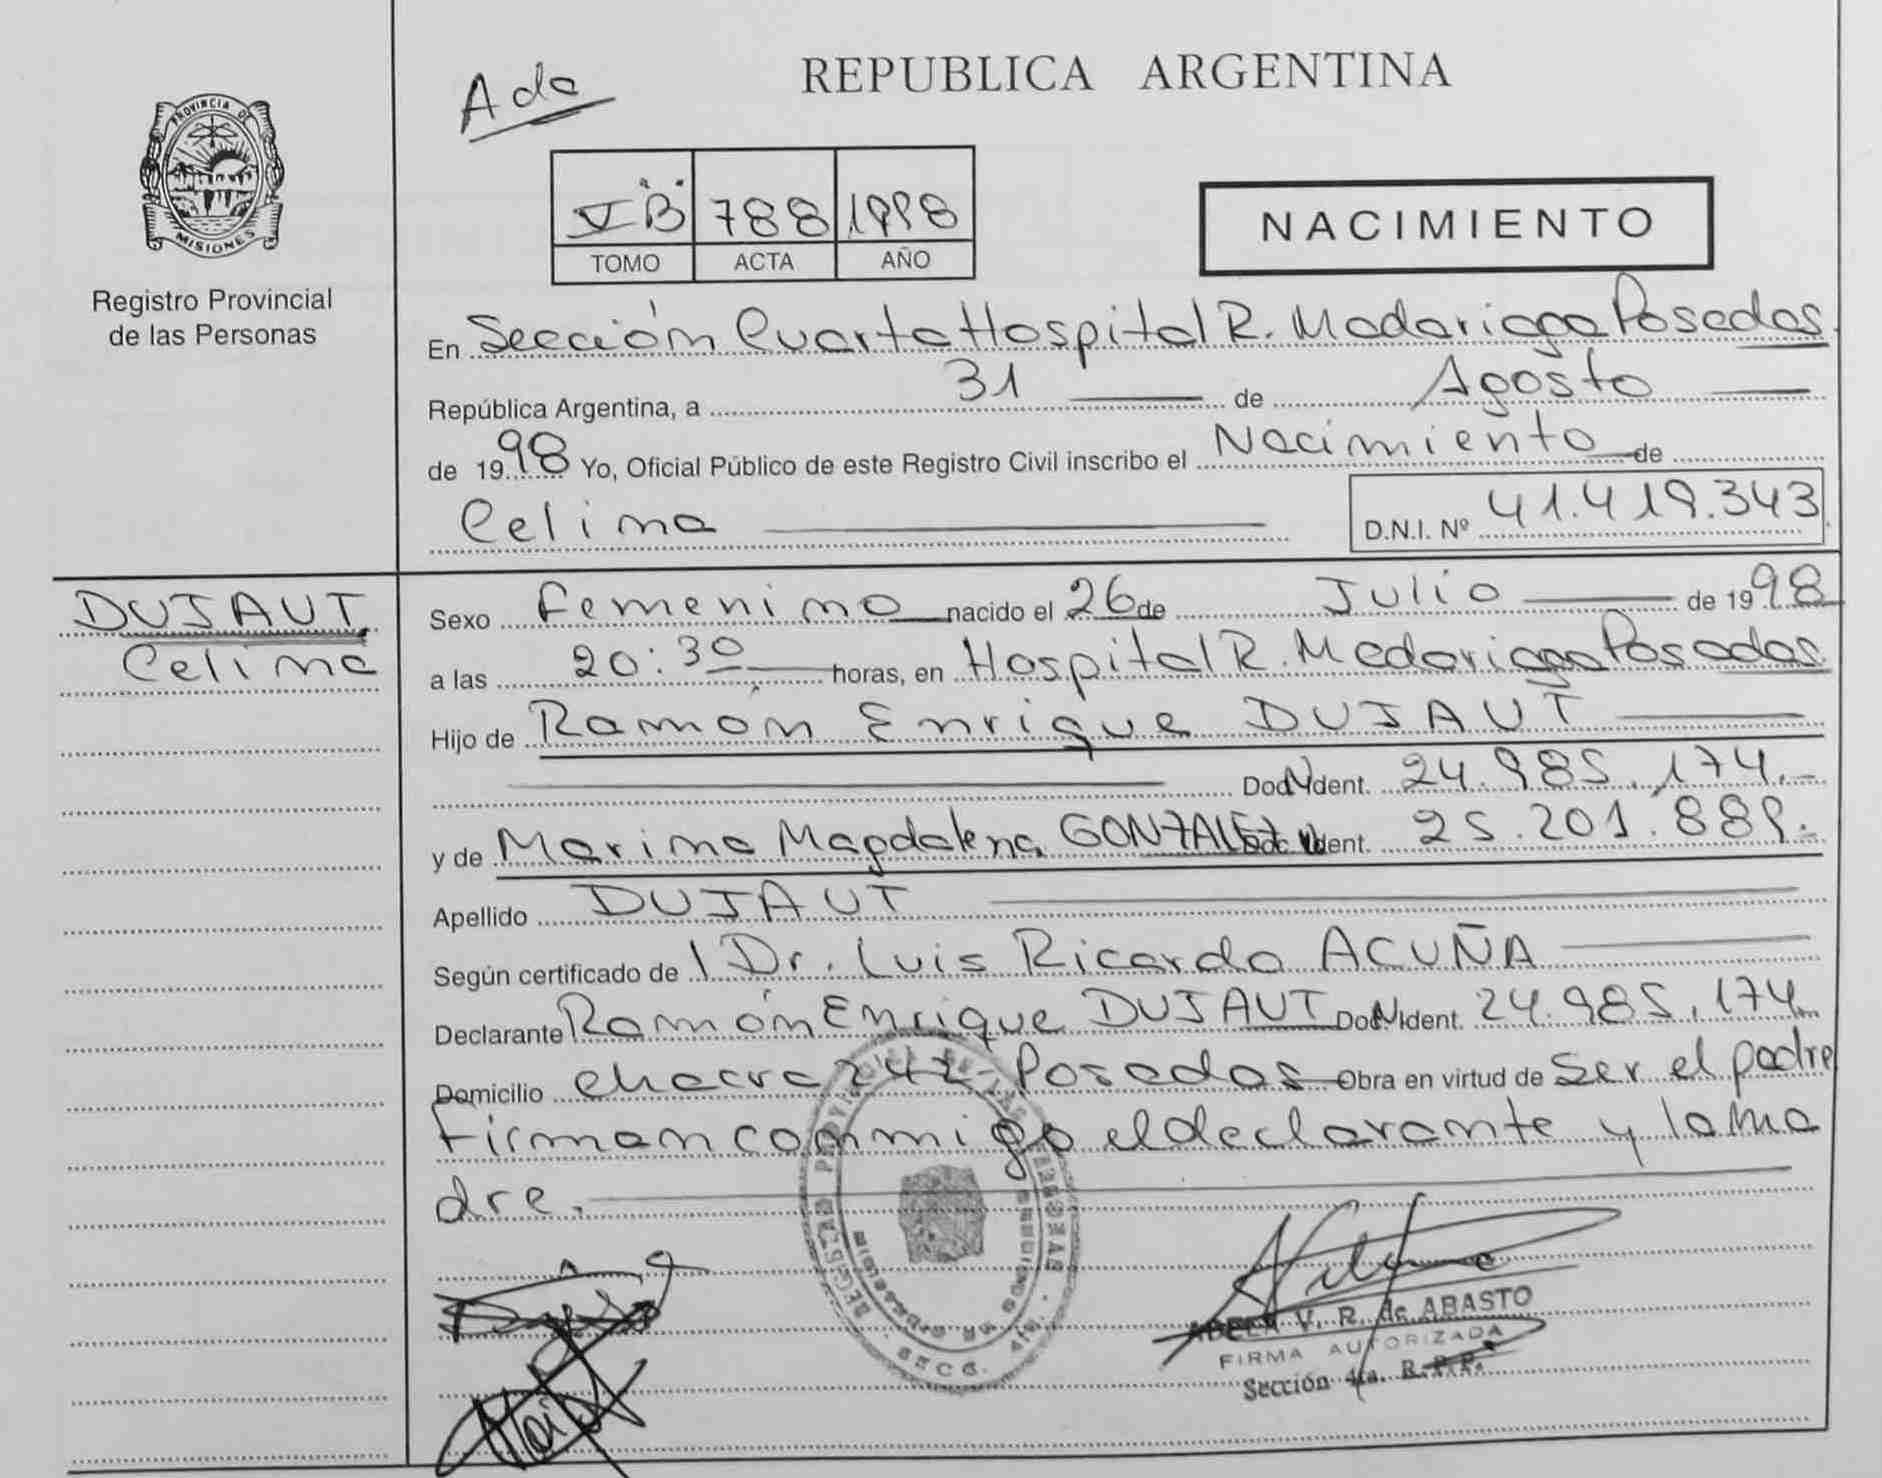 REPUBLICA ARGENTINA
Ada
PROVINCIA DE
MISIONES
Registro Provincial
de las Personas
V "B" 788 1998
TOMO ACTA AÑO
NACIMIENTO
En Sección Cuarta Hospital R. Madariaga Posadas
República Argentina, a 31 de Agosto
de 1998 Yo, Oficial Público de este Registro Civil inscribo el Nacimiento de
Celina D.N.I. Nº 41.419.343
DUJAUT
Celina
Sexo Femenino nacido el 26 de Julio de 1998
a las 20:30 horas, en Hospital R. Madariaga Posadas
Hijo de Ramón Enrique DUJAUT
Doc. Ident. 24.985.174.-
y de Marina Magdalena GONZALEZ Doc. Ident. 25.201.889.
Apellido DUJAUT
Según certificado de Dr. Luis Ricardo ACUÑA
Declarante Ramón Enrique DUJAUT Doc. Ident. 24.985.174
Domicilio chacra 242 - Posadas Obra en virtud de Ser el padre
Firman conmigo el declarante y la ma
dre.
ADELA V. R. de ABASTO
FIRMA AUTORIZADA
Sección 4ta. R.P.P.